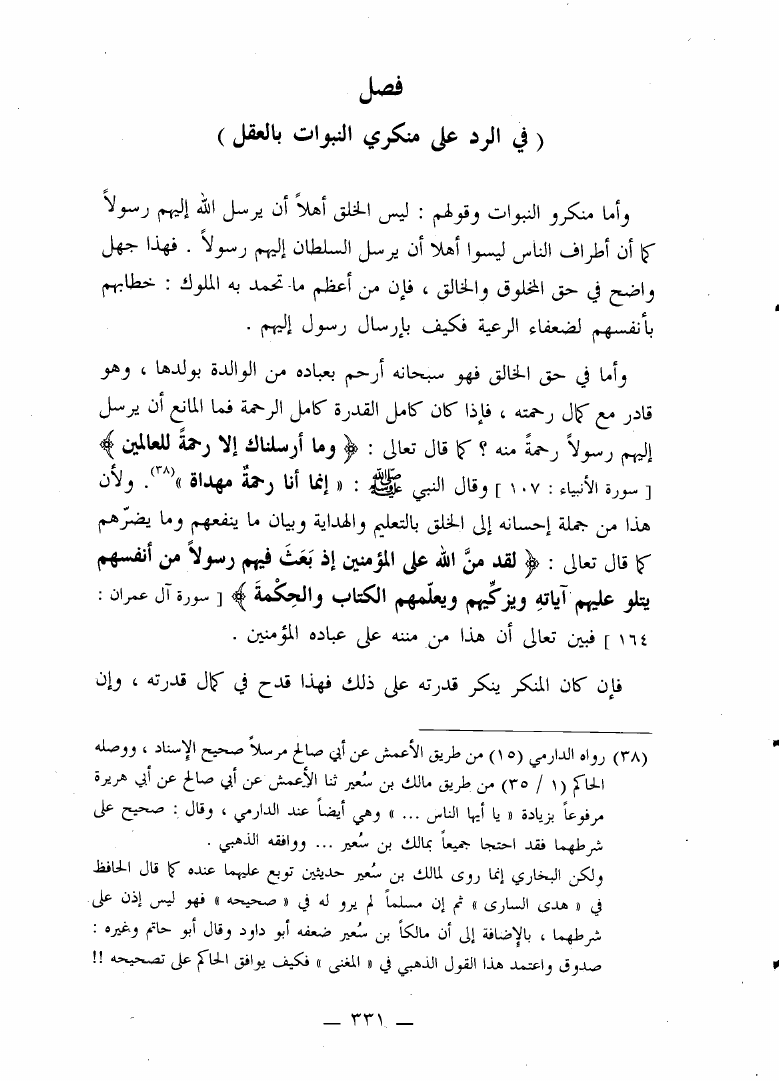 فصل
( في الرد على منكري النبوات بالعقل )
وأما منكرو النبوات وقولهم : ليس الخلق أهلاً أن يرسل الله إليهم رسولاً
كما أن أطراف الناس ليسوا أهلا أن يرسل السلطان إليهم رسولاً . فهذا جهل
واضح في حق المخلوق والخالق ، فإن من أعظم ما تحمد به الملوك : خطابهم
بأنفسهم لضعفاء الرعية فكيف بإرسال رسول إليهم .
وأما في حق الخالق فهو سبحانه أرحم بعباده من الوالدة بولدها ، وهو
قادر مع كمال رحمته ، فإذا كان كامل القدرة كامل الرحمة فما المانع أن يرسل
إليهم رسولاً رحمةً منه ؟ كما قال تعالى : ﴿ وما أرسلناك إلا رحمةً للعالمين ﴾
[ سورة الأنبياء : ١٠٧ ] وقال النبي ﷺ : « إنما أنا رحمةٌ مهداة »(٣٨). ولأن
هذا من جملة إحسانه إلى الخلق بالتعليم والهداية وبيان ما ينفعهم وما يضرّهم
كما قال تعالى : ﴿ لقد منَّ الله على المؤمنين إذ بَعَثَ فيهم رسولاً من أنفسهم
يتلو عليهم آياتهِ ويزكِّيهم ويعلّمهم الكتاب والحِكْمةَ ﴾ [ سورة آل عمران :
١٦٤ ] فبين تعالى أن هذا من مننه على عباده المؤمنين .
فإن كان المنكر ينكر قدرته على ذلك فهذا قدح في كمال قدرته ، وإن
(٣٨) رواه الدارمي (١٥) من طريق الأعمش عن أبي صالح مرسلاً صحيح الإسناد ، ووصله
الحاكم (١ / ٣٥) من طريق مالك بن سُعير ثنا الأعمش عن أبي صالح عن أبي هريرة
مرفوعاً بزيادة « يا أيها الناس ... » وهي أيضاً عند الدارمي ، وقال : صحيح على
شرطهما فقد احتجا جميعاً بمالك بن سُعير ... ووافقه الذهبي .
ولكن البخاري إنما روى لمالك بن سُعير حديثين توبع عليهما عنده كما قال الحافظ
في « هدى السارى » ثم إن مسلماً لم يرو له في « صحيحه » فهو ليس إذن على
شرطهما ، بالإضافة إلى أن مالكاً بن سُعير ضعفه أبو داود وقال أبو حاتم وغيره :
صدوق واعتمد هذا القول الذهبي في « المغنى » فكيف يوافق الحاكم على تصحيحه !!
— ٣٣١ —